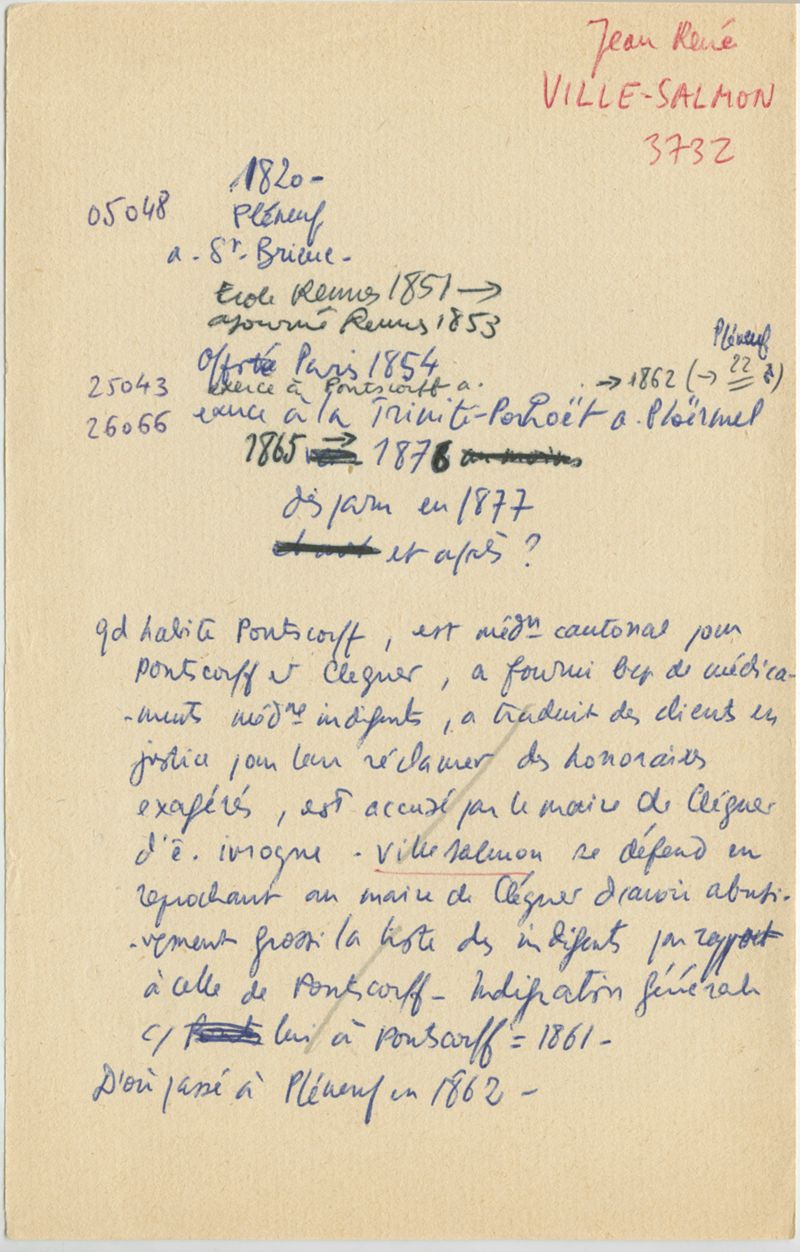 Jean René
VILLE-SALMON
3732
1820 -
05048 Pléneuf
a. St. Brieuc -
Ecole Rennes 1851 →
ajourné Rennes 1853
Off. té Paris 1854
Pléneuf
25043 exerce à Pontscorff a. → 1862 (→ 22 ?)
26066 exerce à la Trinité-Porhoët a. Ploërmel
1865 → 1876
disparu en 1877
et après ?
qd habite Pontscorff, est médn cantonal pour
Pontscorff et Cléguer, a fourni bcp de médica-
-ments médne indigents, a traduit des clients en
justice pour leur réclamer des honoraires
exagérés, est accusé par le maire de Cléguer
d'ê. ivrogne - Ville Salmon se défend en
reprochant au maire de Cléguer d'avoir abusi-
-vement grossi la liste des indigents par rapport
à celle de Pontscorff - Indignation générale
c/ lui à Pontscorff = 1861 -
D'où passé à Pléneuf en 1862 -